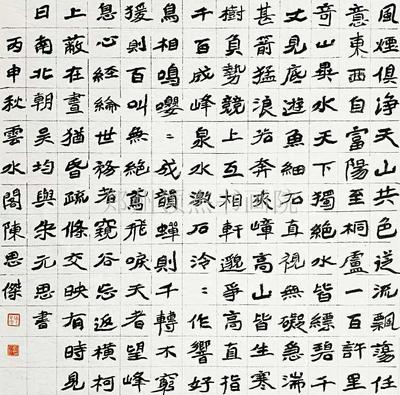 風煙俱淨天山共色從流飄蕩任
意東西自富陽至桐廬一百許里
奇山異水天下獨絕水皆縹碧千
丈見底遊魚細石直視無礙急湍
甚箭猛浪若奔夾嶂高山皆生寒
樹負勢競上互相軒邈爭高直指
千百成峰泉水激石泠〻作響好
鳥相鳴嚶〻成韻蟬則千轉不窮
猨則百叫無絕鳶飛唳天者望峰
息心經綸世務者窺谷忘返橫柯
上蔽在晝猶昏疏條交映有時見
日南北朝吳均與朱元思書
丙申秋雲水閣陳思傑